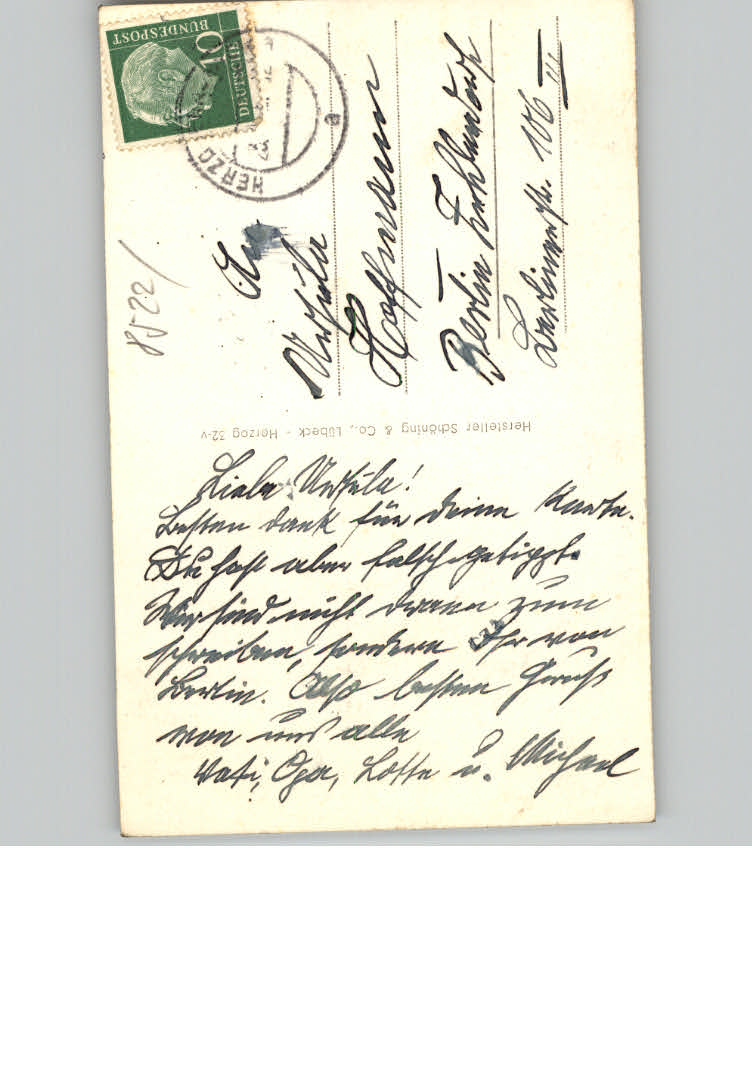 DEUTSCHE
BUNDESPOST
10
HERZO
a
8522/
An
Ursula
Hofmann
Berlin Zehlendorf
Berlinerstr. 106 III
Hersteller Schöning & Co., Lübeck - Herzog 32-v
Liebe Ursula!
Besten Dank für Deine Karte.
Du hast aber falsch getippt.
Wir sind nicht dran zum
schreiben, sondern Ihr von
Berlin. Also besten Gruß
von uns alle
Vati, Opa, Lotte u. Michael